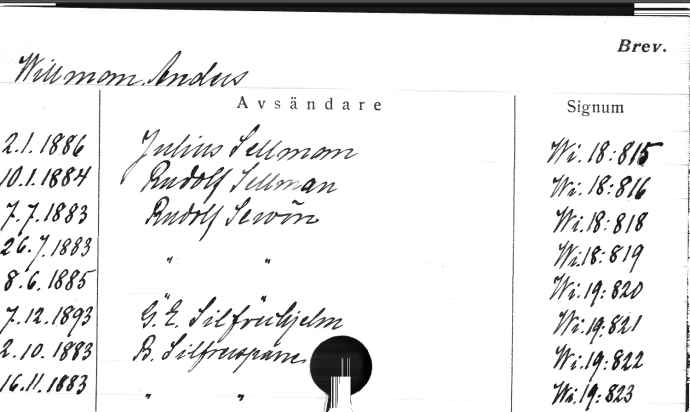 Brev.
Willman, Anders
Avsändare Signum
2.1.1886 Julius Sellman Wi.18:815
10.1.1884 Rudolf Sellman Wi.18:816
7.7.1883 Rudolf Sewón Wi.18:818
26.7.1883 " " Wi.18:819
8.6.1885 Wi.19:820
7.12.1893 G.E. Silfverhjelm Wi.19:821
2.10.1883 B. Silfversparre Wi.19:822
16.11.1883 " " Wi.19:823